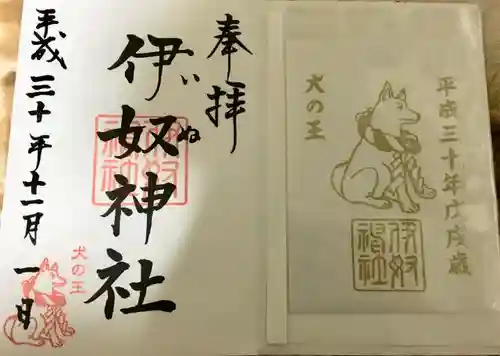 奉拝
伊奴神社
いぬ
伊奴神社
平成三十年十一月一日
犬の王
平成三十年戊戌歳
犬の王
伊奴神社